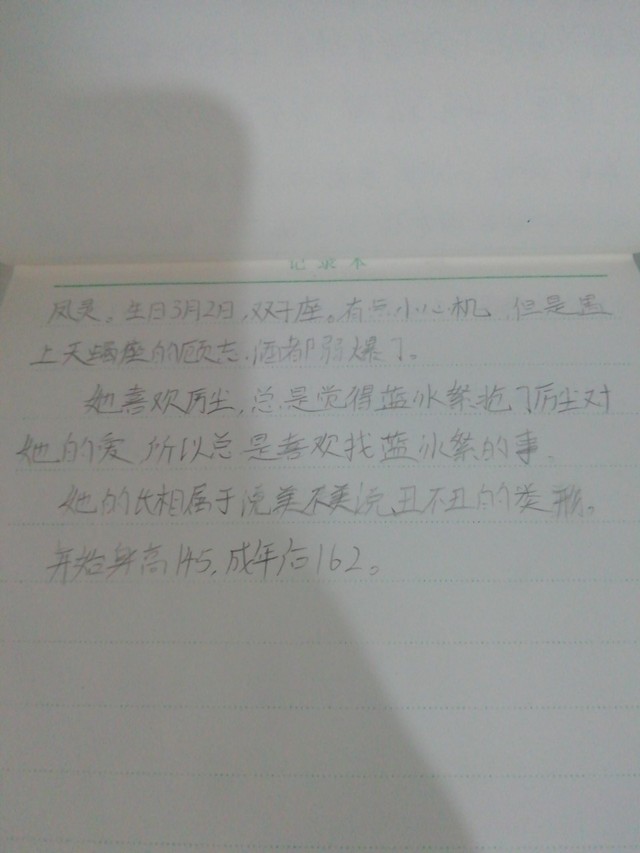 记录本
凤灵。生日3月2日,双子座。有点小心机,但是遇
上天蝎座的顾志,酒都弱爆了。
她喜欢厉尘,总是觉得蓝冰紫抢了厉尘对
她的爱,所以总是喜欢找蓝冰紫的事。
她的长相属于说美不美,说丑不丑的类型。
开始身高145,成年后162。